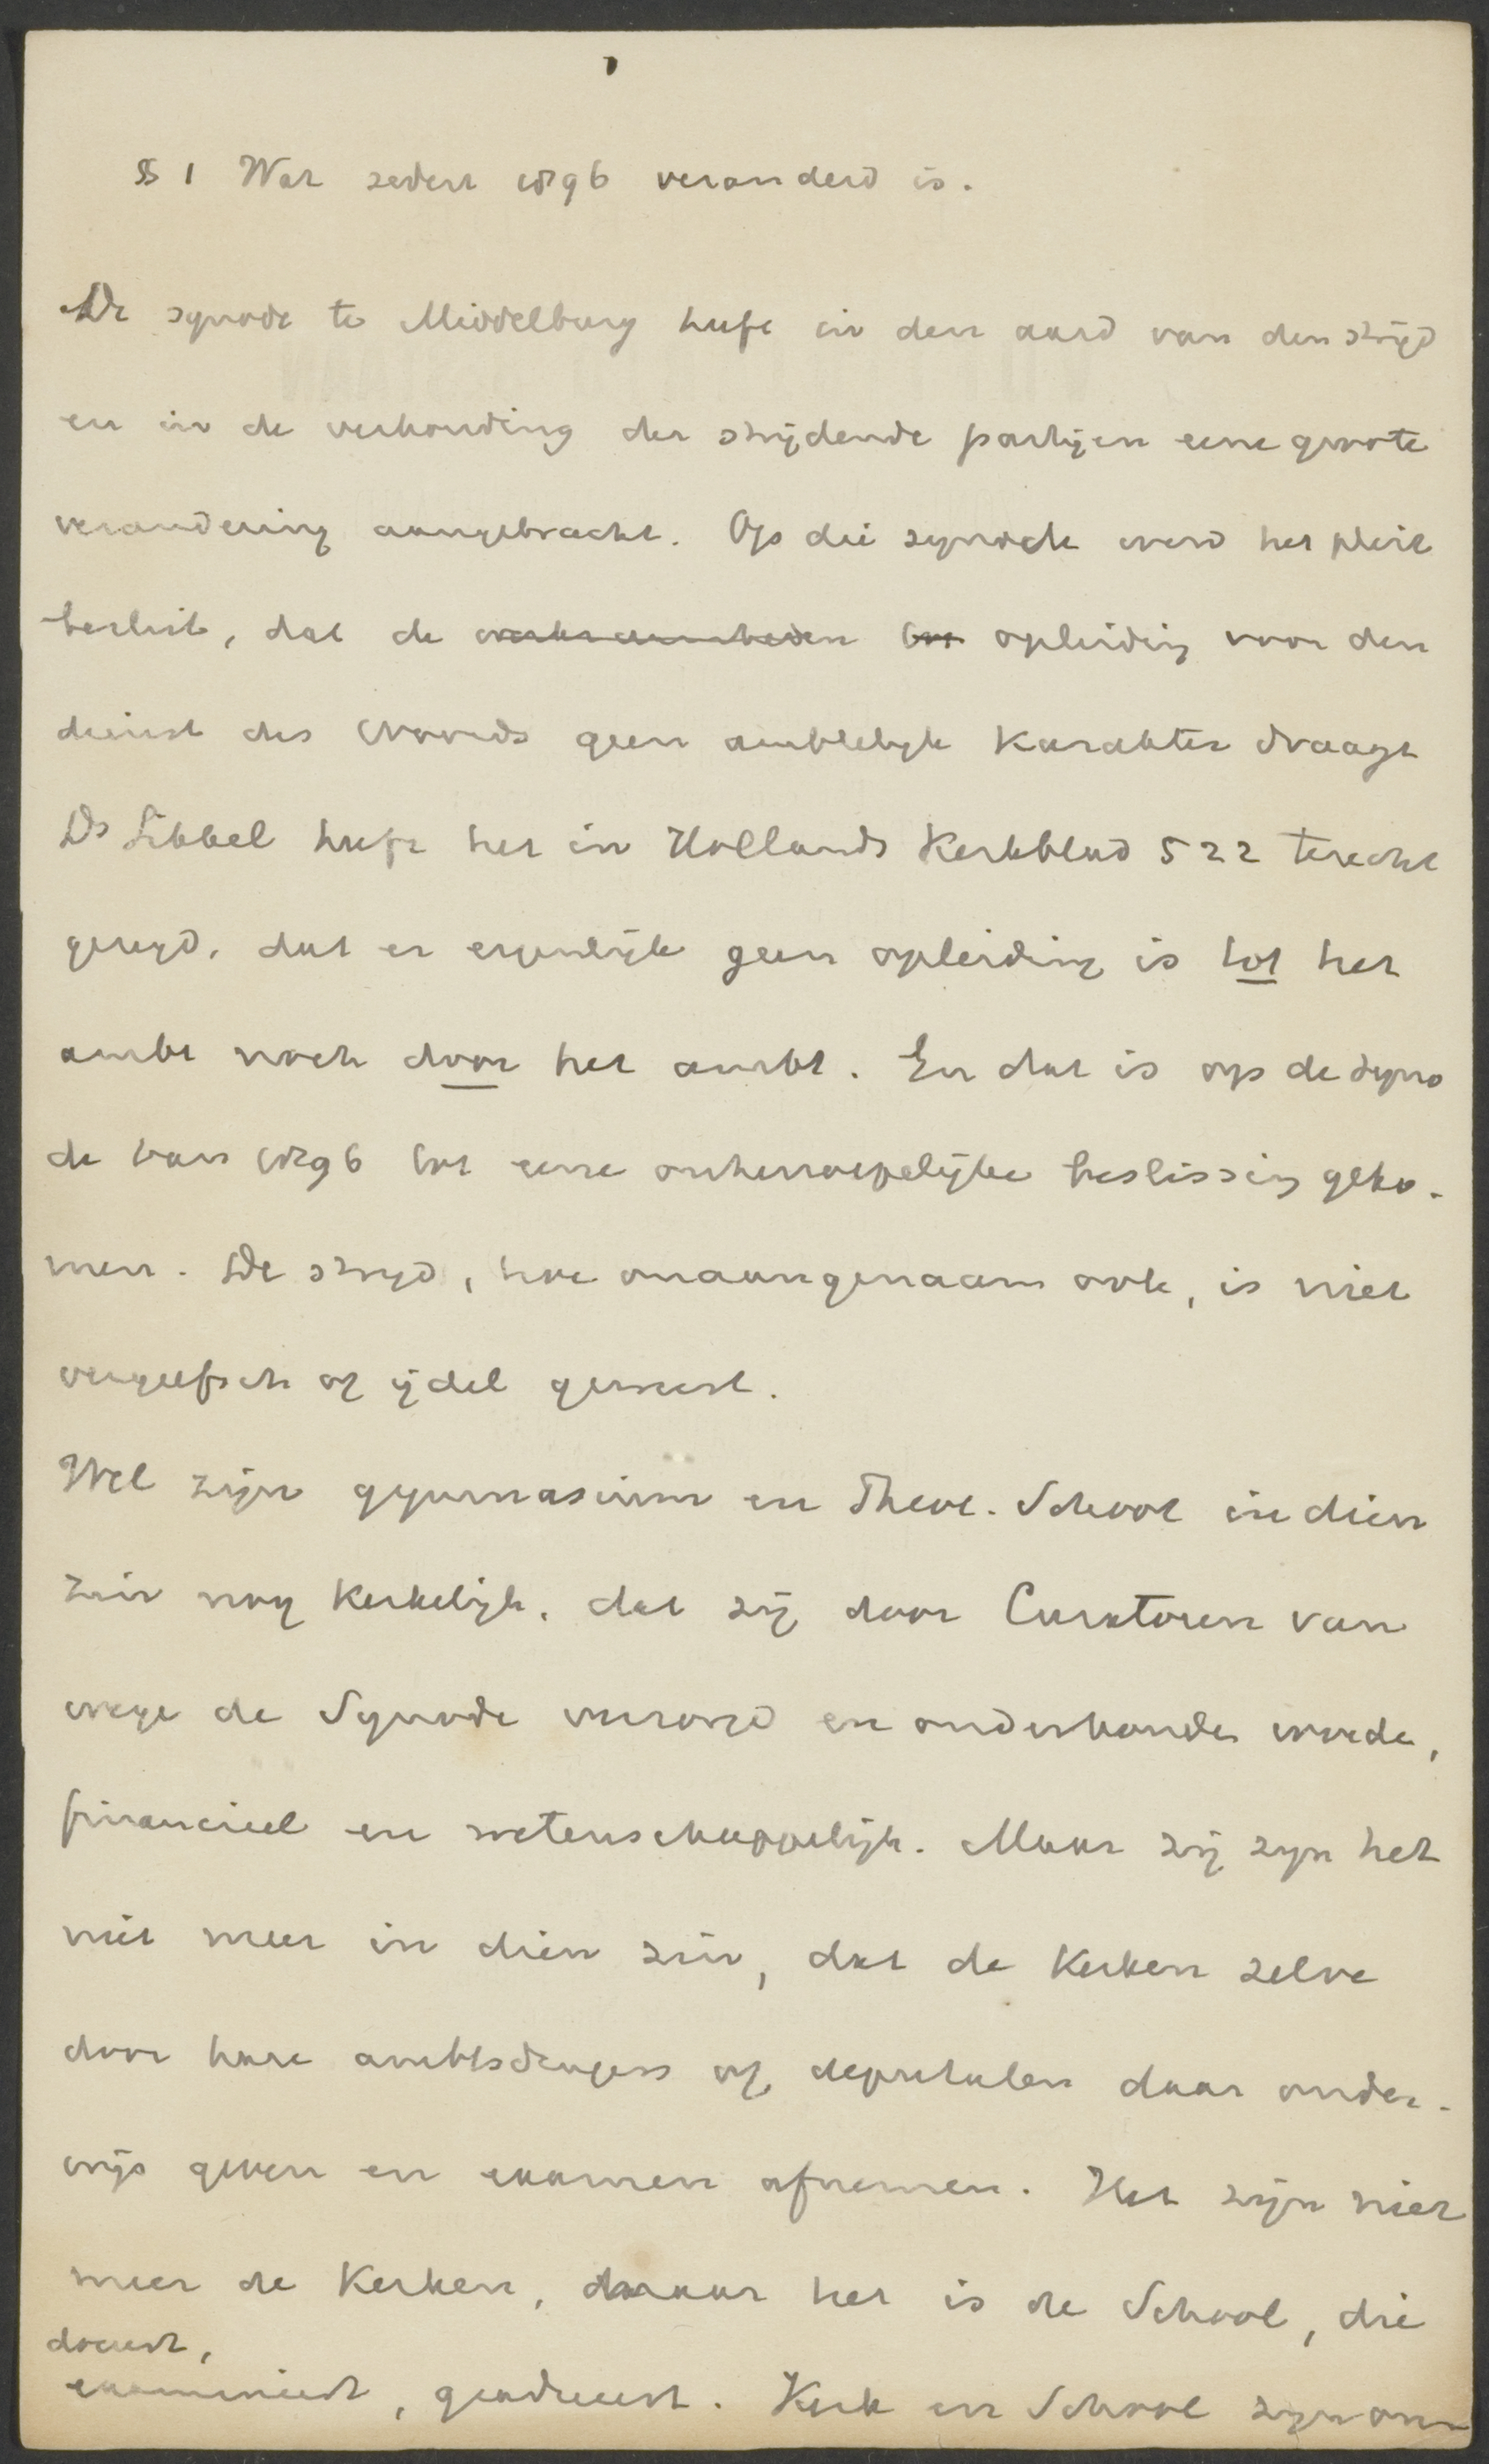 § 1 Wat sedert 1896 veranderd is.
De synode te Middelburg heeft in den aard van den strijd
en in de verhouding der strijdende partijen eene groote
verandering aangebracht. Op die synode werd het pleit
beslist, dat de werkzaamheden tot opleiding voor den
dienst des Woords geen ambtelijk karakter draagt
Ds Sikkel heeft het in Hollands Kerkblad 522 terecht
gezegd, dat er eigenlijk geen opleiding is tot het
ambt noch door het ambt. En dat is op de syno
de van 1896 tot eene onherroepelijke beslissing geko-
men. De strijd, hoe onaangenaam ook, is niet
vergeefsch of ijdel geweest.
Wel zijn gymnasium en Theol. School in dien
zin nog kerkelijk, dat zij door Curatoren van
wege de Synode verzorgd en onderhouden worde,
financieel en wetenschappelijk. Maar zij zijn het
niet meer in dien zin, dat de Kerken zelve
door hare ambtsdragers of deputaten daar onder-
wijs geven en examen afnemen. Het zijn niet
meer de Kerken, maar het is de School, die
doceert,
examineert, gradueert. Kerk en School zijn